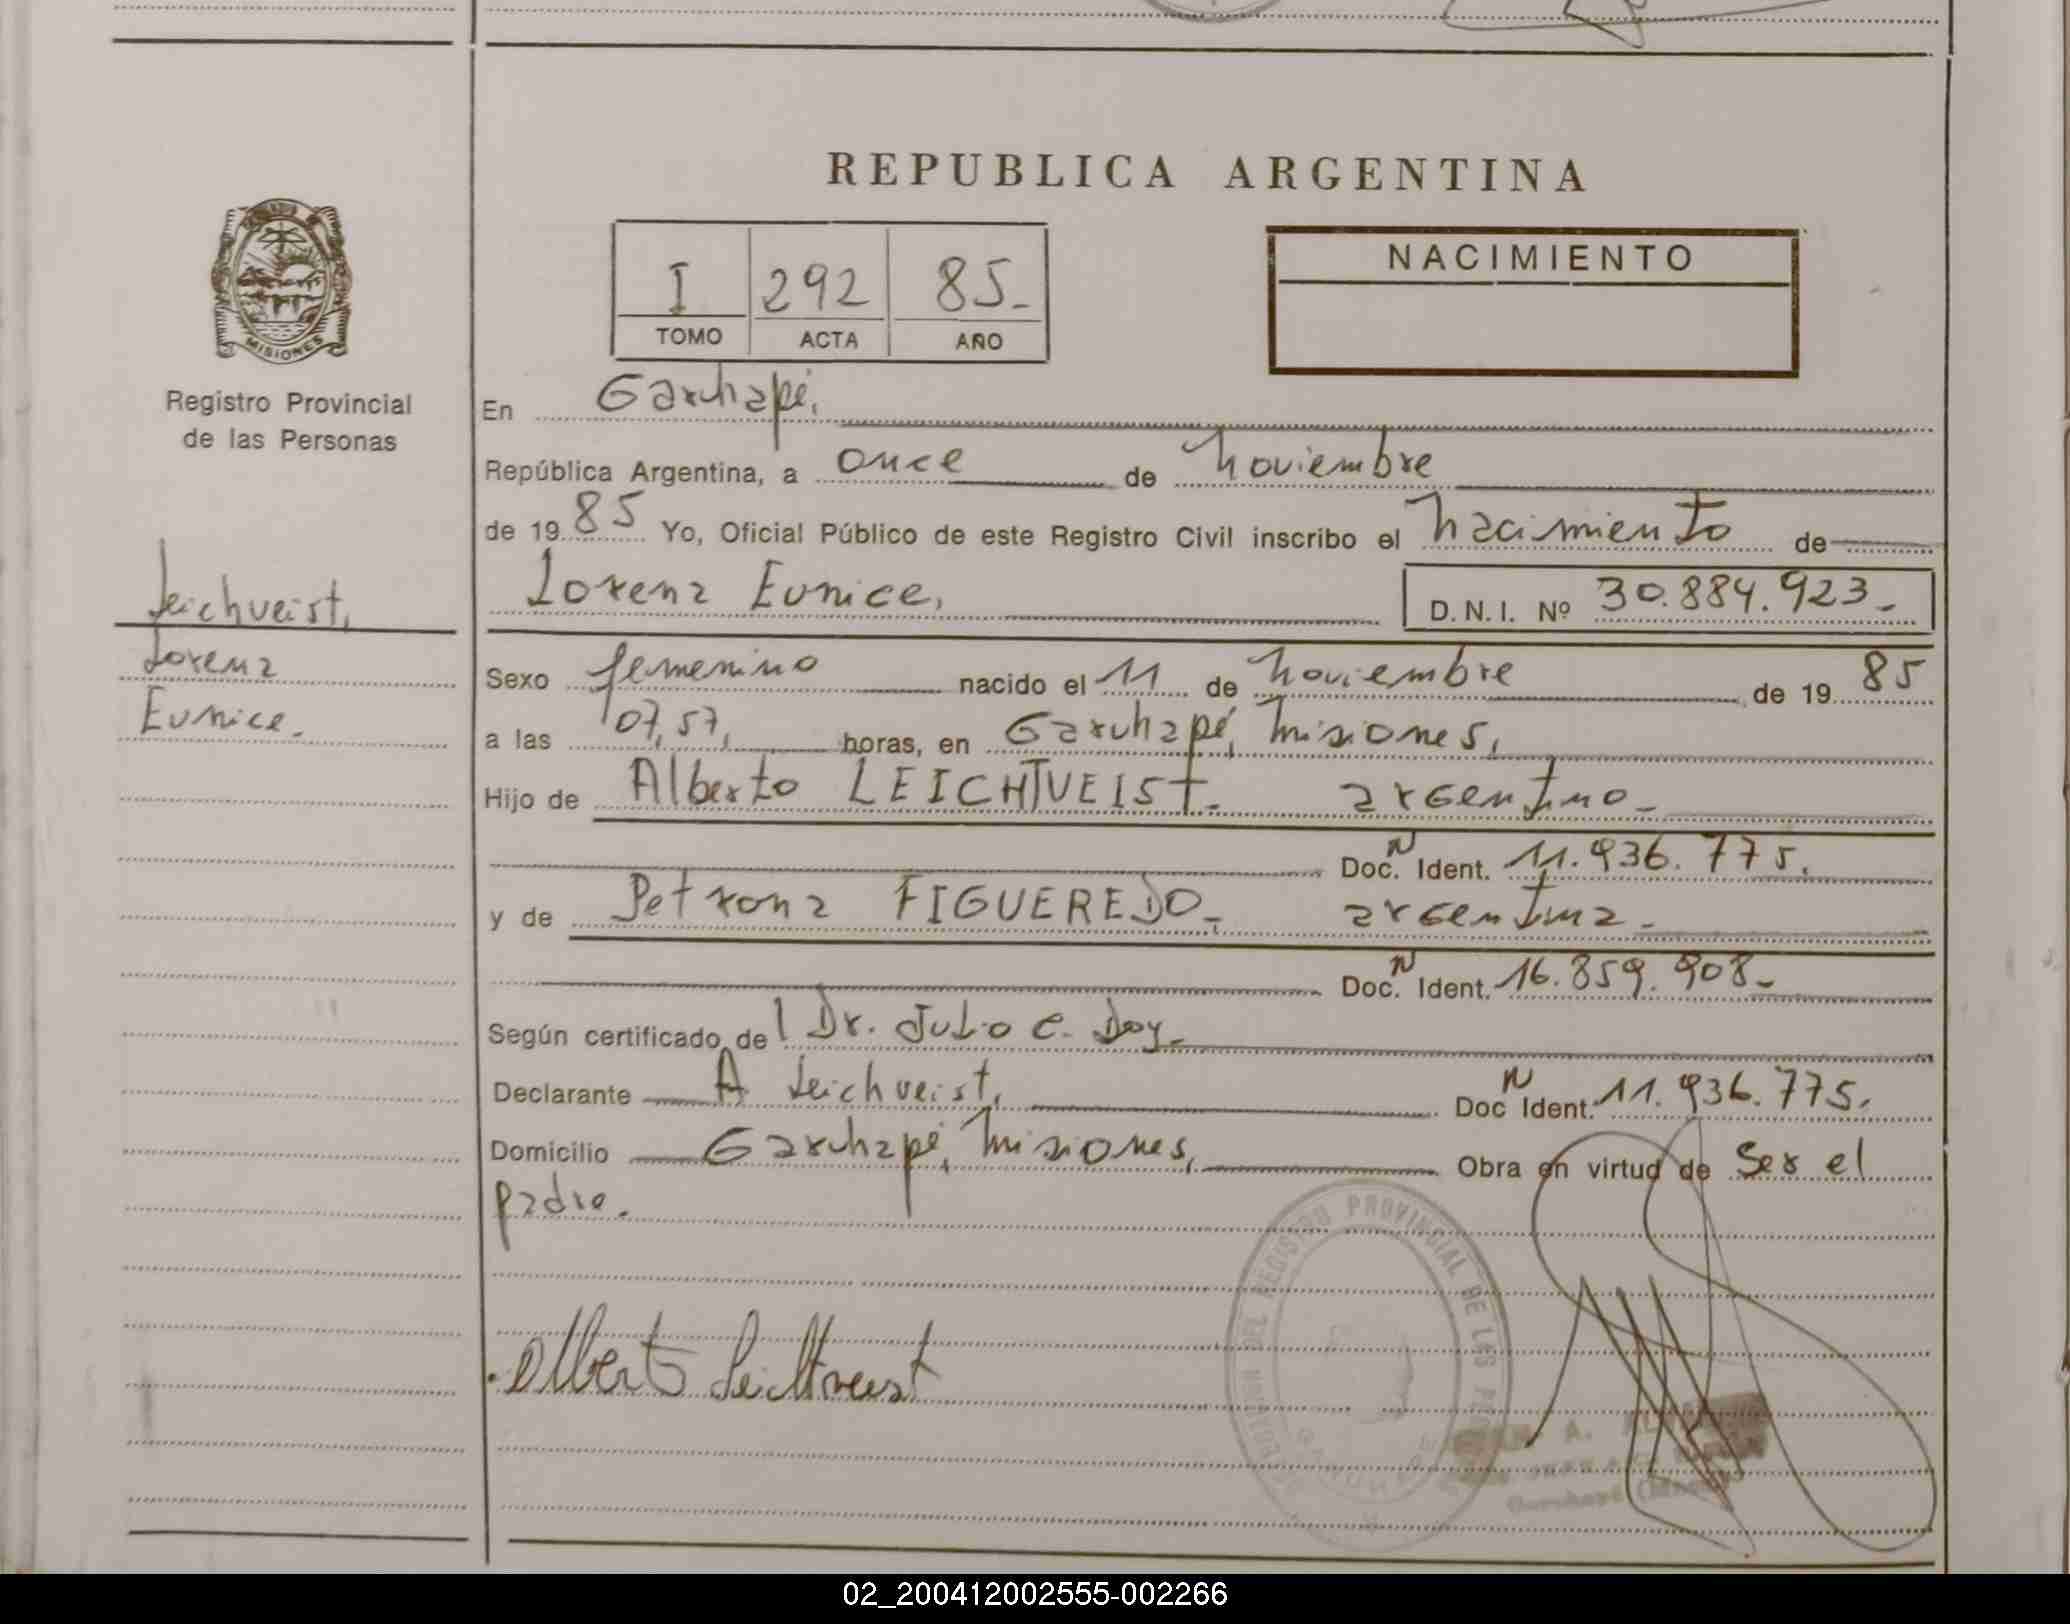 REPUBLICA ARGENTINA
NACIMIENTO
I 292 85-
TOMO ACTA AÑO
MISIONES
Registro Provincial
de las Personas
En Garuhapé,
República Argentina, a once de noviembre
de 19 85 Yo, Oficial Público de este Registro Civil inscribo el nacimiento de
Lorena Eunice,
D.N.I. Nº 30.884.923-
Leichveist,
Lorena
Eunice.
Sexo femenino nacido el 11 de noviembre de 19 85
a las 07,57, horas, en Garuhapé, Misiones,
Hijo de Alberto LEICHTVEIST- argentino-
Doc. Ident. 11.936.775.
y de Petrona FIGUEREDO- argentina-
Doc. Ident. 16.859.908-
Según certificado de l Dr. Julio C. Doy-
Declarante A Leichveist, Doc Ident. 11.936.775.
Domicilio Garuhapé, Misiones, Obra en virtud de ser el
padre.
Alberto Leichtveist
REGISTRO PROVINCIAL DE LAS
02_200412002555-002266